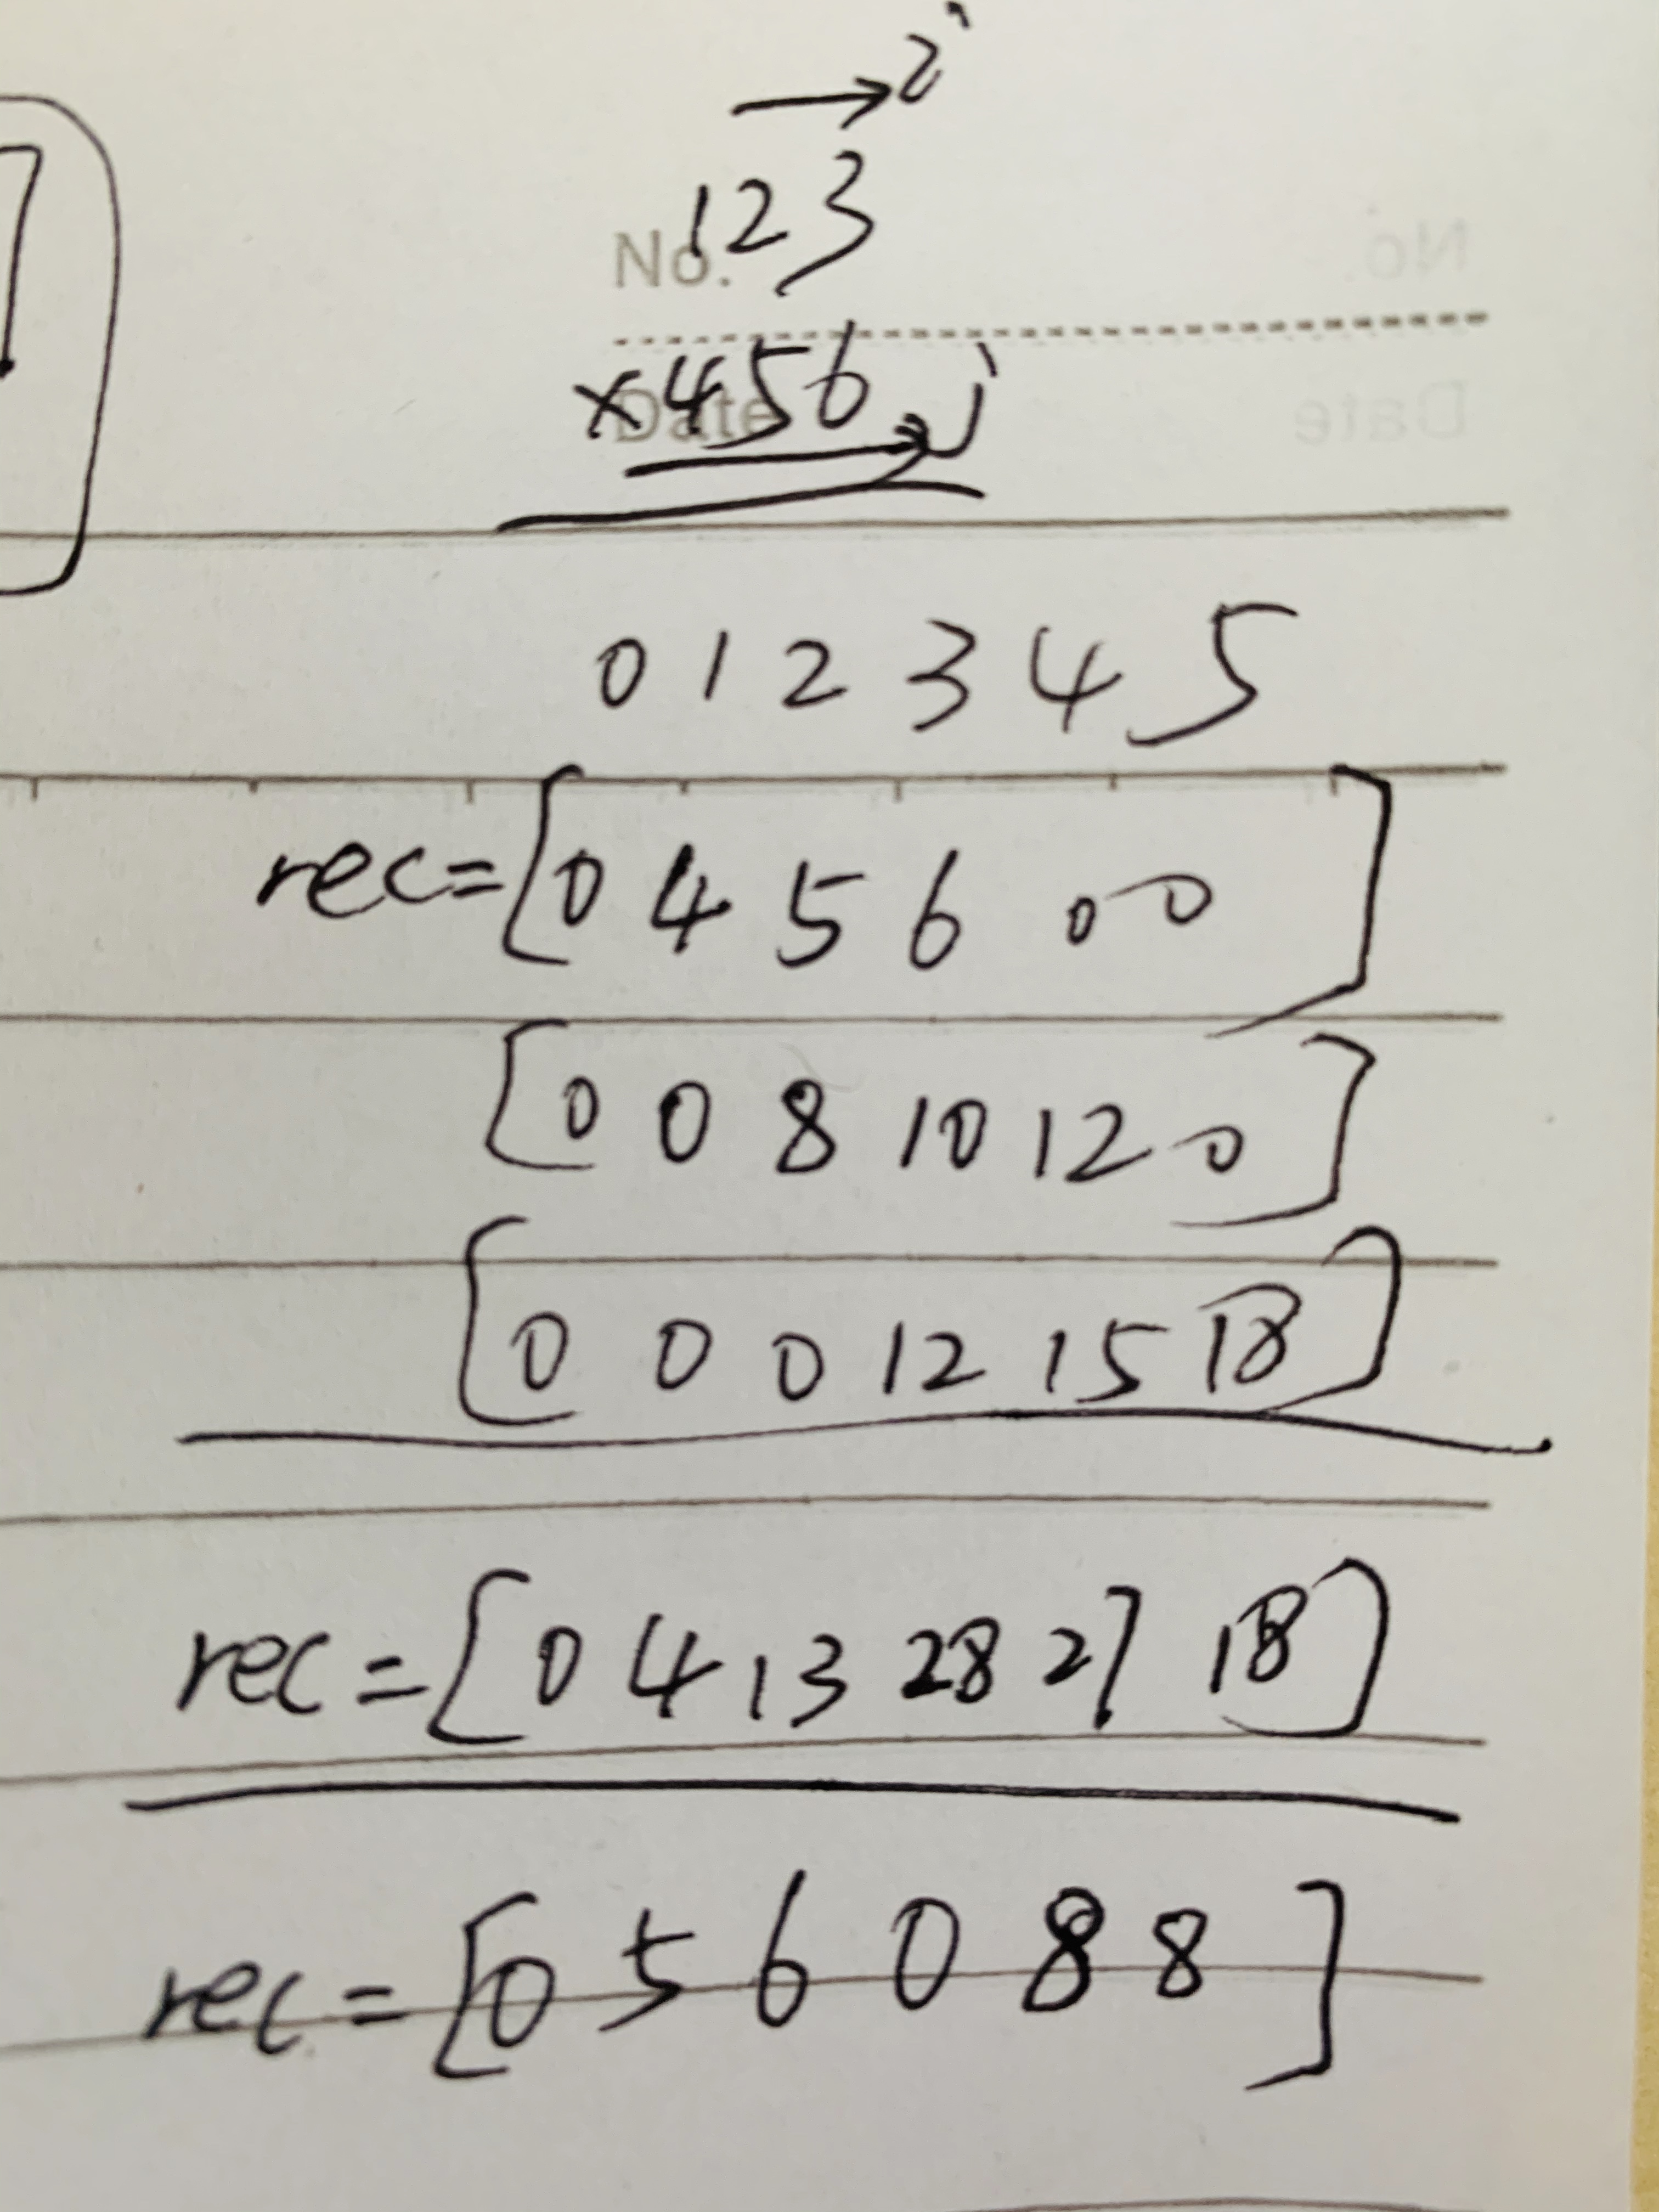 → i
123
No.
×456 → j
Date
0 1 2 3 4 5
rec=[0 4 5 6 0 0]
[0 0 8 10 12 0]
[0 0 0 12 15 18]
rec=[0 4 13 28 27 18]
rec=[0 5 6 0 8 8]